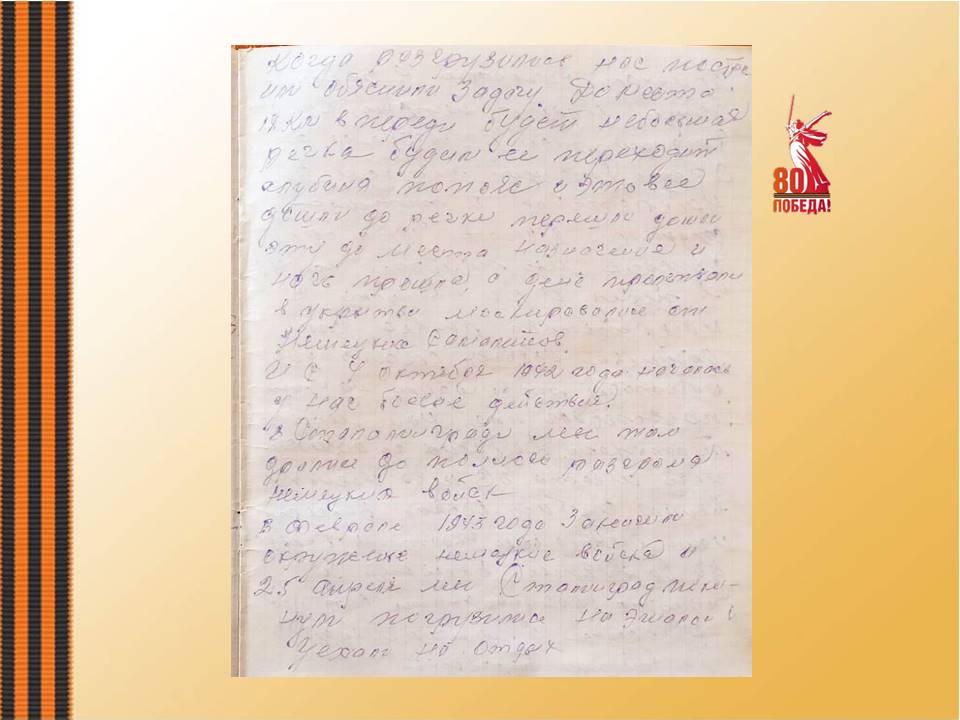 Когда разгрузились нас постро
или обяснили Задачу До места
18 Км впереди будет небольшая
речка будем ее переходит
глубина попояс и это все
дошли до речки перешли дошли
эти до места назначения и
ночь прошла, а день
в укрытии маскировались от
Немецких Самолетов
И С 4 октября 1942 года началось
у нас боевое действия.
в Сталинграде мы там
до полного разгрома
немецких войск
В Феврале 1943 года Закончили
окружение немецкие войска и
25 Апреля мы Сталинград поки-
нули погрузились На Эшалон
Уехали на отдых
80
ПОБЕДА!